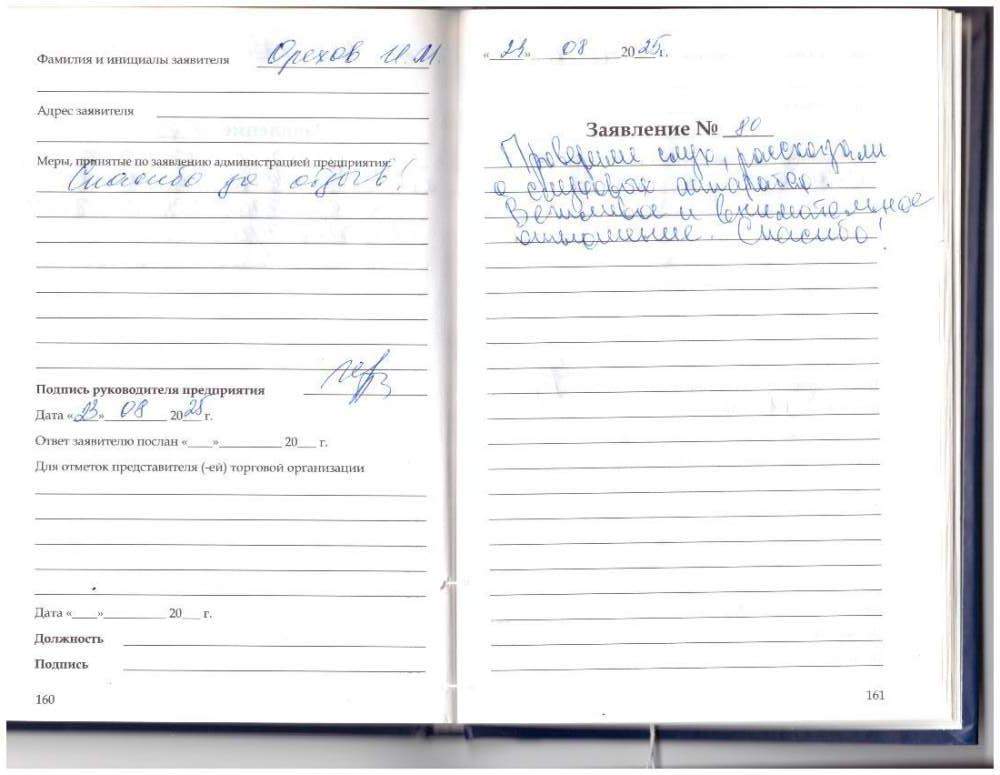 Фамилия и инициалы заявителя Орехов И.М.
Адрес заявителя
Меры, принятые по заявлению администрацией предприятия:
Спасибо за отзыв!
Подпись руководителя предприятия
Дата «23» 08 2025 г.
Ответ заявителю послан «____»__________ 20___ г.
Для отметок представителя (-ей) торговой организации
Дата «____»__________ 20___ г.
Должность
Подпись
160
«23» 08 2025г.
Заявление № 80
слух, рассказали
о слуховых аппаратах.
Вежливое и внимательное
отношение. Спасибо!
161